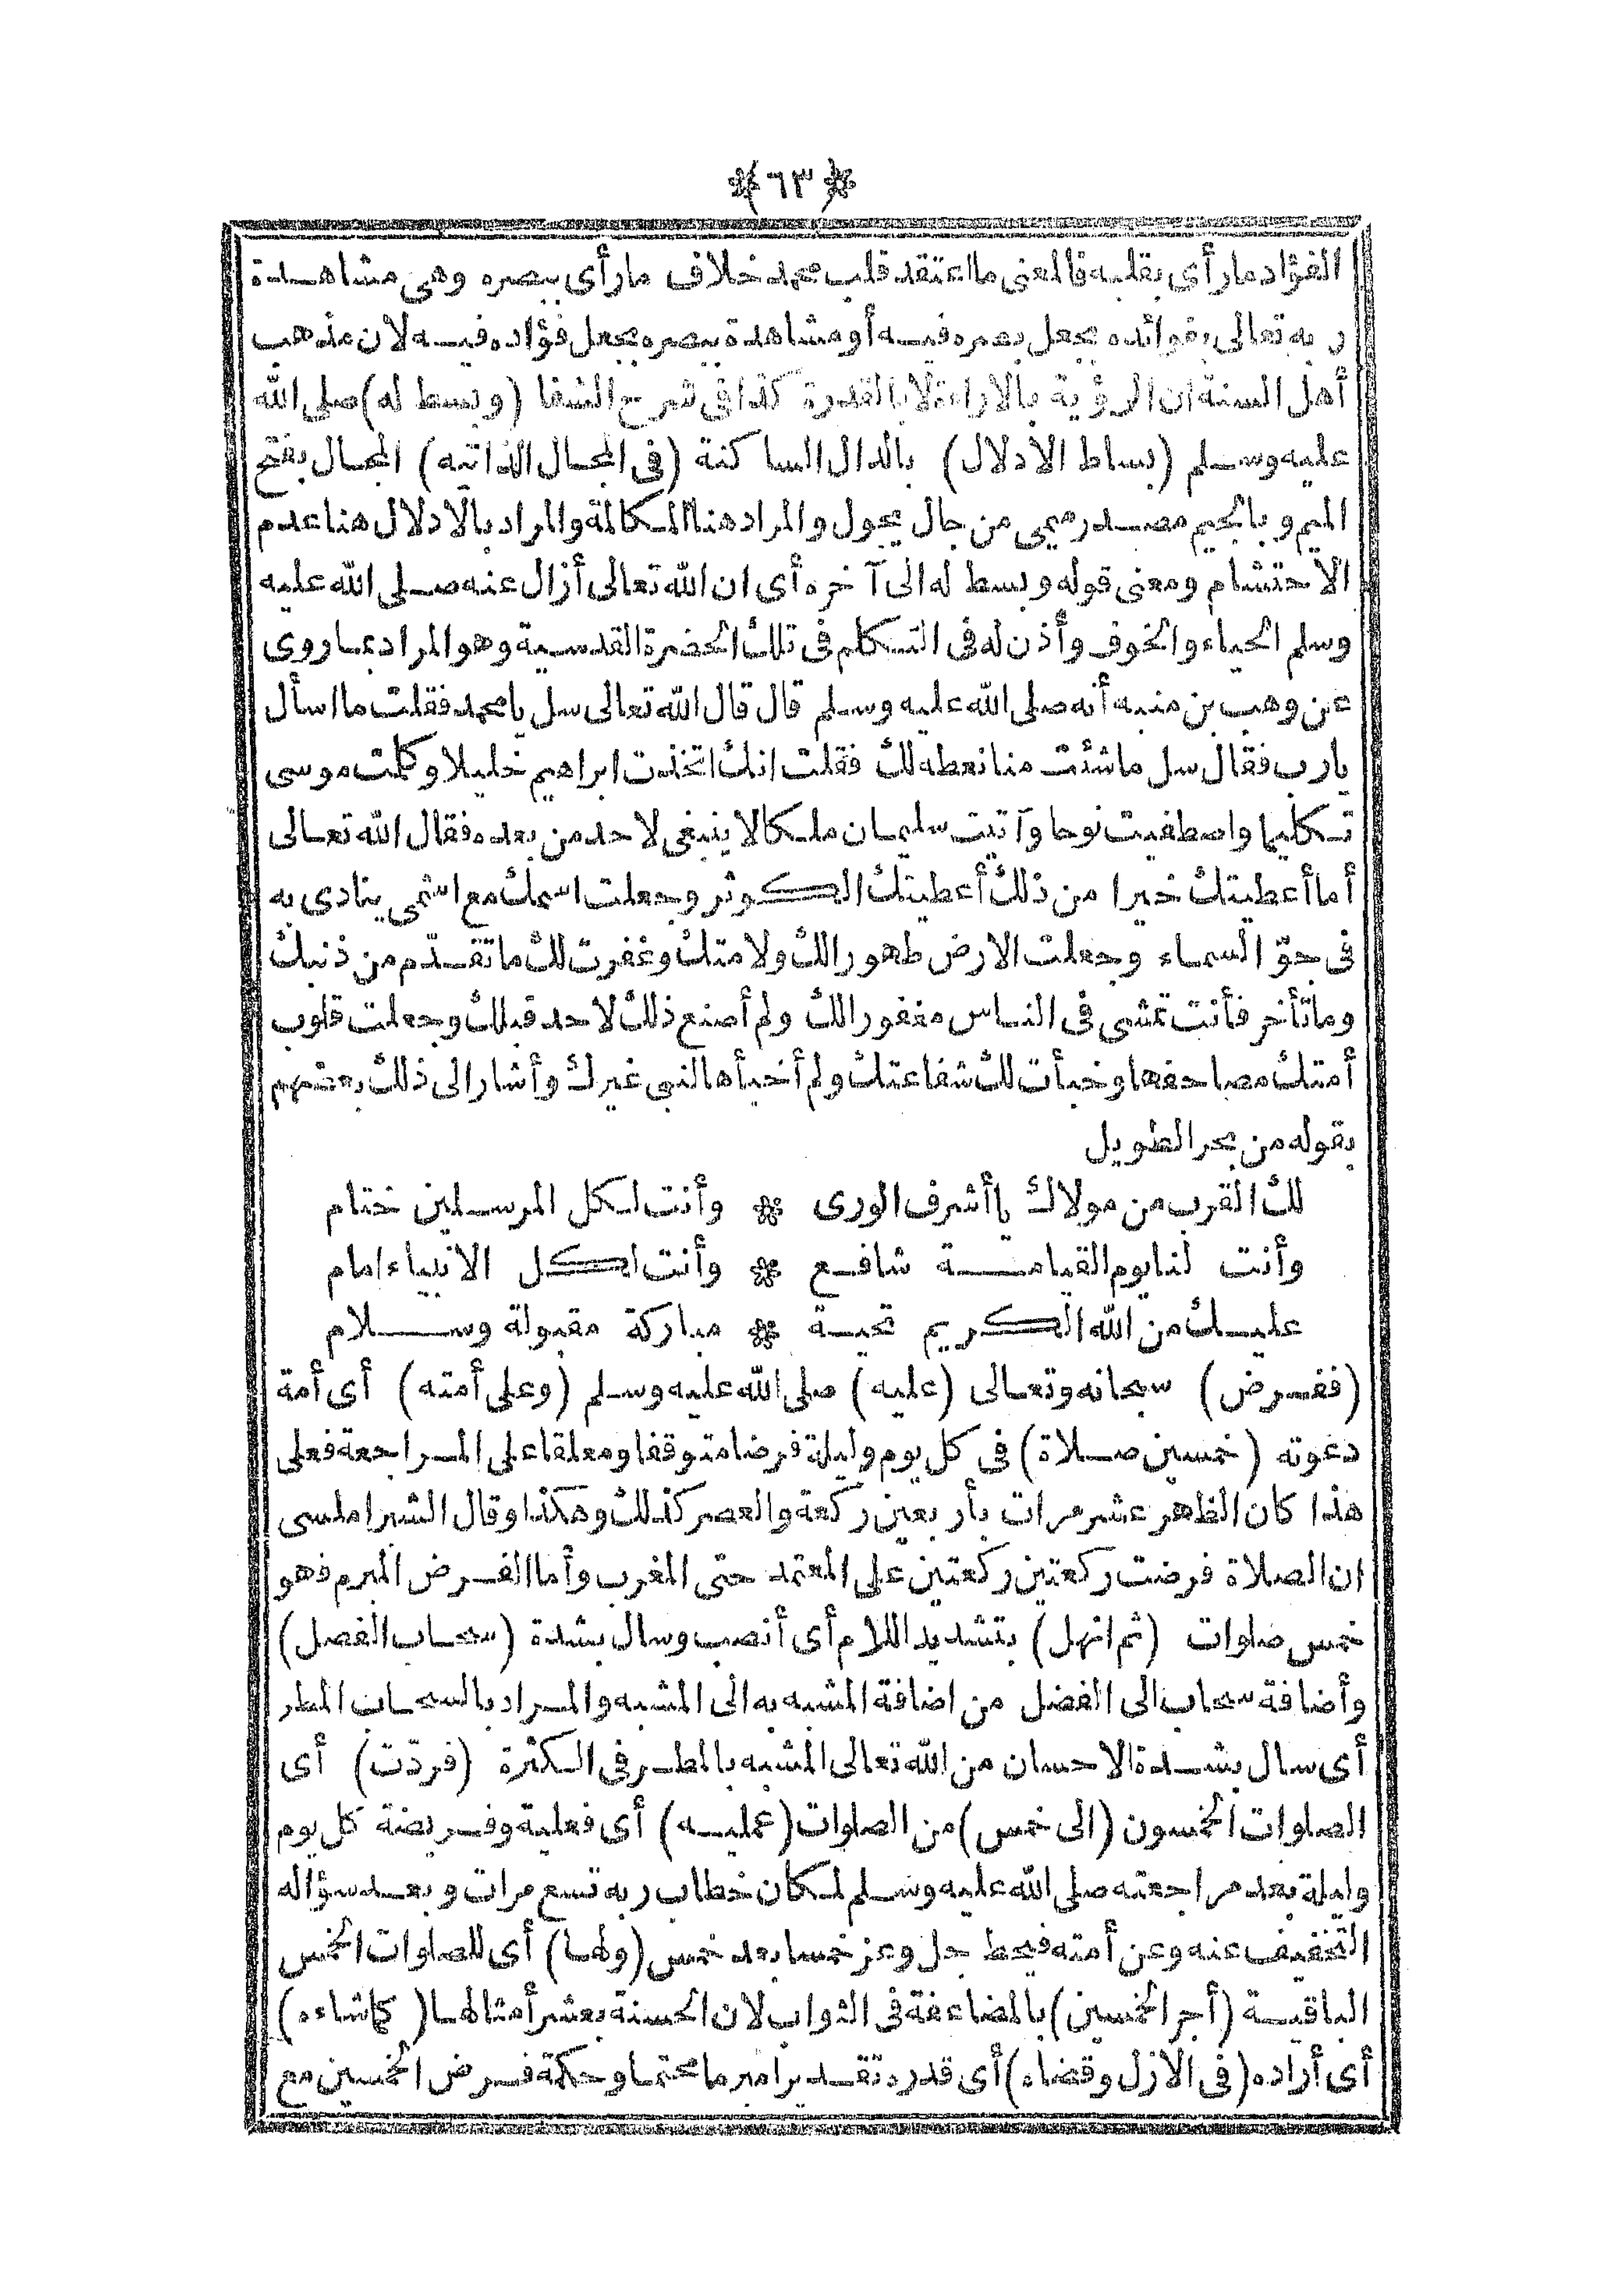 ﴿ ٦٣ ﴾
الفؤاد مارأى بقلبه فالمعنى مااعتقد قلب محمد خلاف مارأى ببصره وهى مشاهدة
ربه تعالى بفؤائده بجعل بصره فيه أومشاهدة ببصره بجعل فؤاده فيه لان مذهب
أهل السنة ان الرؤية بالاراءة لا بالقدرة كذا فى شرح الشفا (وبسط له) صلى الله
عليه وسلم (بساط الادلال) بالدال الساكنة (فى المجال الذاتيه) المجال بفتح
الميم وبالجيم مصدر ميمى من جال يجول والمراد هنا المكالمة والمراد بالادلال هنا عدم
الاحتشام ومعنى قوله وبسط له الى آخره أى ان الله تعالى أزال عنه صلى الله عليه
وسلم الحياء والخوف وأذن له فى التكلم فى تلك الحضرة القدسية وهو المراد بماروى
عن وهب بن منبه أنه صلى الله عليه وسلم قال قال الله تعالى سل يامحمد فقلت مااسأل
يارب فقال سل ماشئت منا نعطه لك فقلت انك اتخذت ابراهيم خليلا وكلمت موسى
تكليما واصطفيت نوحا وآتيت سليمان ملكا لا ينبغى لاحد من بعده فقال الله تعالى
أما أعطيتك خيرا من ذلك أعطيتك الكوثر وجعلت اسمك مع اسمى ينادى به
فى جوّ السماء وجعلت الارض طهورا لك ولامتك وغفرت لك ماتقدّم من ذنبك
وماتأخر فأنت تمشى فى الناس مغفورا لك ولم أصنع ذلك لاحد قبلك وجعلت قلوب
أمتك مصاحفها وخبأت لك شفاعتك ولم أخبأها لنبى غيرك وأشار الى ذلك بعضهم
بقوله من بحر الطويل
لك القرب من مولاك ياأشرف الورى * وأنت لكل المرسلين ختام
وأنت لنا يوم القيامة شافع * وأنت لكل الانبياء امام
عليك من الله الكريم تحية * مباركة مقبولة وسلام
(ففرض) سبحانه وتعالى (عليه) صلى الله عليه وسلم (وعلى أمته) أى أمة
دعوته (خمسين صلاة) فى كل يوم وليلة فرضا متوقفا ومعلقا على المراجعة فعلى
هذا كان الظهر عشر مرات بأربعين ركعة والعصر كذلك وهكذا وقال الشبراملسى
ان الصلاة فرضت ركعتين ركعتين على المعتمد حتى المغرب وأما الفرض المبرم فهو
خمس صلوات (ثم انهل) بتشديد اللام أى أنصب وسال بشدة (سحاب الفضل)
وأضافة سحاب الى الفضل من اضافة المشبه به الى المشبه والمراد بالسحاب المطر
أى سال بشدة الاحسان من الله تعالى المشبه بالمطر فى الكثرة (فردّت) أى
الصلوات الخمسون (الى خمس) من الصلوات (عمليه) أى فعلية وفريضة كل يوم
وليلة بعد مراجعته صلى الله عليه وسلم لمكان خطاب ربه تسع مرات وبعد سؤاله
التخفيف عنه وعن أمته فيحط جل وعز خمسا بعد خمس (ولها) أى للصلوات الخمس
الباقية (أجر الخمسين) بالمضاعفة فى الثواب لان الحسنة بعشر أمثالها (كماشاءه)
أى أراده (فى الازل وقضاه) أى قدره تقديرا مبرما محتما وحكمة فرض الخمسين مع